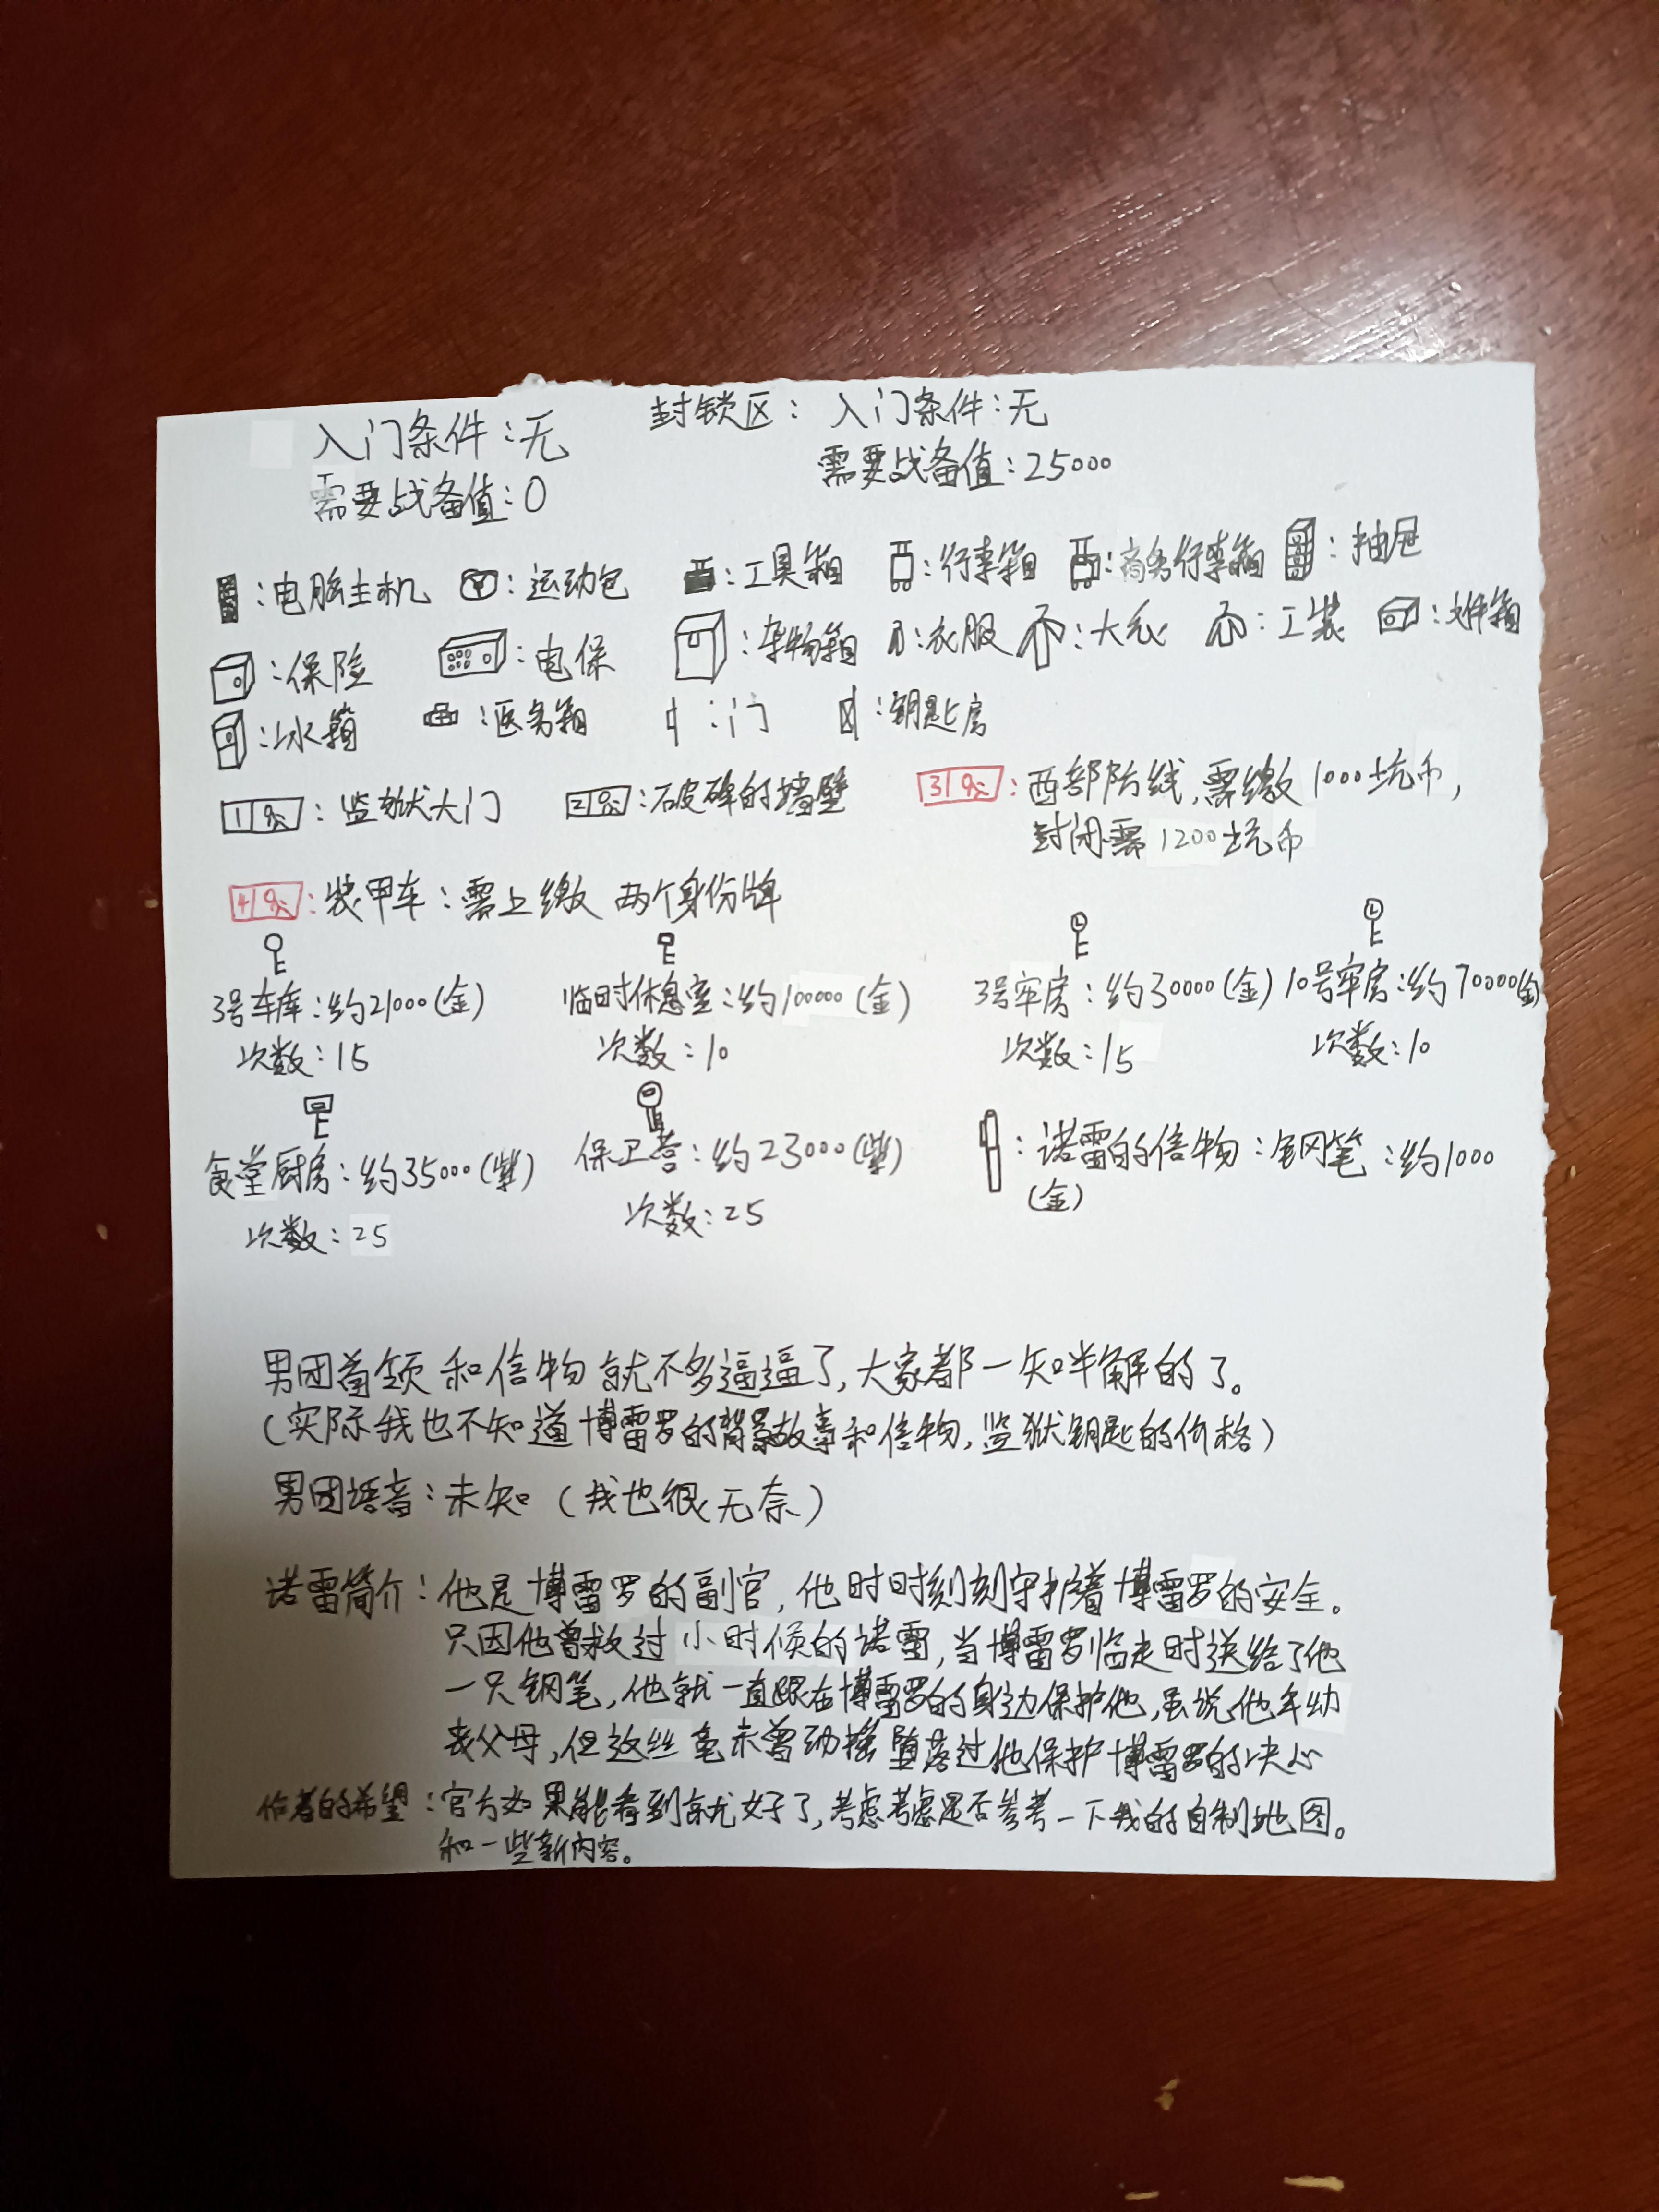 入门条件：无
封锁区：入门条件：无
需要战备值：0
需要战备值：25000
：电脑主机 ：运动包 ：工具箱 ：行李箱 ：商务行李箱 ：抽屉
：保险 ：电保 ：杂物箱 ：衣服 ：大衣 ：工装 ：文件箱
：冰箱 ：医务箱 ：门 ：钥匙房
1 ：监狱大门 2 ：破碎的墙壁 3 ：西部防线，需缴1000坑币，
封闭需1200坑币
4 ：装甲车：需上缴 两个身份牌
3号车库：约21000（金） 临时休息室：约100000（金） 3号牢房：约30000（金） 10号牢房：约70000（金）
次数：15 次数：10 次数：15 次数：10
食堂厨房：约35000（紫） 保卫营：约23000（紫） ：诺雷的信物：钢笔：约1000
（金）
次数：25 次数：25
男团首领和信物就不多逼逼了，大家都一知半解的了。
（实际我也不知道博雷罗的背景故事和信物，监狱钥匙的价格）
男团语音：未知（我也很无奈）
诺雷简介：他是博雷罗的副官，他时时刻刻守护着博雷罗的安全。
只因他曾救过小时候的诺雷，当博雷罗临走时送给了他
一只钢笔，他就一直跟在博雷罗的身边保护他，虽说他年幼
丧父母，但这丝毫未曾动摇堕落过他保护博雷罗的决心
作者的希望：官方如果能看到就好了，考虑考虑是否参考一下我的自制地图。
和一些新内容。